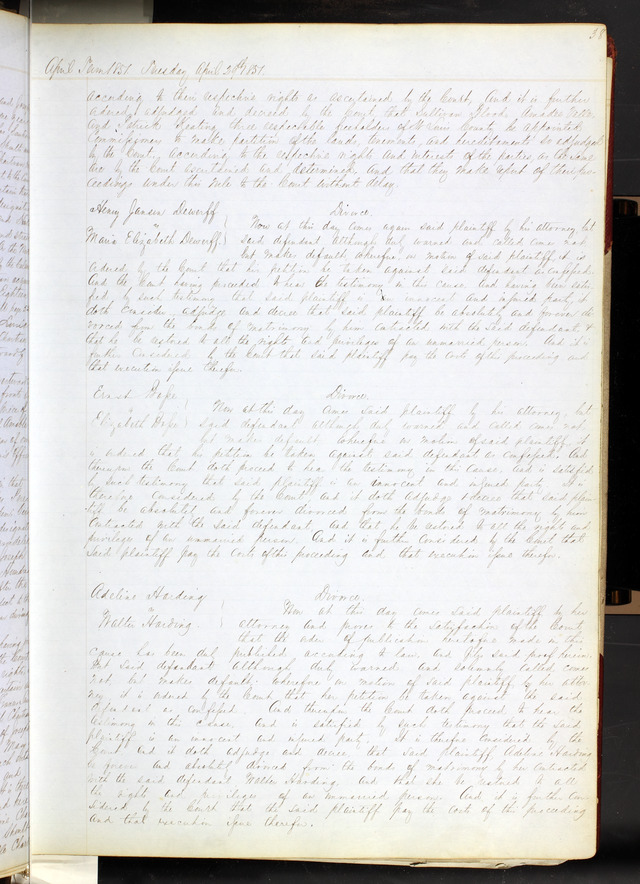 38
April Term 1851. Tuesday, April 29th 1851.
according to their respective rights as ascertained by the Court, And it is further
ordered adjudged and decreed by the Court that Sullivan Blood, Amadee
and Keating three respectable freeholders of St Louis County be appointed
Commissioners to make partition of the lands, tenements, and hereditaments so adjudged
by the Court, according to the respective rights and interests of the parties, as the same
are by the Court ascertained and determined, and that they make report of their pro-
ceedings under this rule to the Court without delay.
Henry Jansen Dewerff Divorce.
" Now at this day comes again said plaintiff by his attorney, but
Maria Elizabeth Dewerff. said defendant although duly warned and called comes not,
but makes default, wherefore on motion of said plaintiff it is
ordered by the Court that his petition be taken against said defendant as confessed.
And the Court having proceeded to hear the testimony in this cause and having been satis-
fied by such testimony that said plaintiff is an innocent and injured party, it
doth consider adjudge and decree that said plaintiff be absolutely and forever di-
vorced from the bonds of matrimony by him contracted with the said defendant, &
that he be restored to all the rights and privileges of an unmarried person. And it is
further considered by the Court that said plaintiff pay the costs of this proceeding and
that execution issue therefor.
Ernst Pape Divorce.
" Now at this day comes said plaintiff by his attorney, but
Elizabeth Pape said defendant although duly warned and called comes not
but makes default, wherefore on motion of said plaintiff it
is ordered that his petition be taken against said defendant as confessed. And
thereupon the Court doth proceed to hear the testimony in this cause, and is satisfied
by such testimony that said plaintiff is an innocent and injured party It is
therefore considered by the Court and it doth adjudge & decree that said plain-
tiff be absolutely and forever divorced from the bonds of matrimony by him
contracted with the said defendant, and that he be restored to all the rights and
privileges of an unmarried person. And it is further considered by the Court that
said plaintiff pay the costs of this proceeding and that execution issue therefor.
Adeline Harding Divorce.
" Now at this day comes said plaintiff by her
Walter Harding. attorney and proves to the satisfaction of the Court,
that the order of publication heretofore made in this
cause has been duly published according to law. And said proof being
that said defendant although duly warned and solemnly called comes
not, but makes default: wherefore on motion of said plaintiff by her attor-
ney, it is ordered by the Court that her petition be taken against the said
defendant as confessed. And thereupon the Court doth proceed to hear the
testimony in this cause, and is satisfied by such testimony that the said
plaintiff is an innocent and injured party. It is therefore considered by the
Court and it doth adjudge and decree, that said plaintiff Adeline Harding
be forever and absolutely divorced from the bonds of matrimony by her contracted
with the said defendant Walter Harding, and that she be restored to all
the rights and privileges of an unmarried person. And it is further con-
sidered by the Court that the said plaintiff pay the costs of this proceeding
and that execution issue therefor.